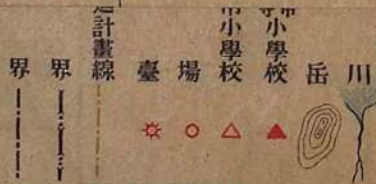 川
岳
小學校
小學校
場
臺
計畫線
界
界